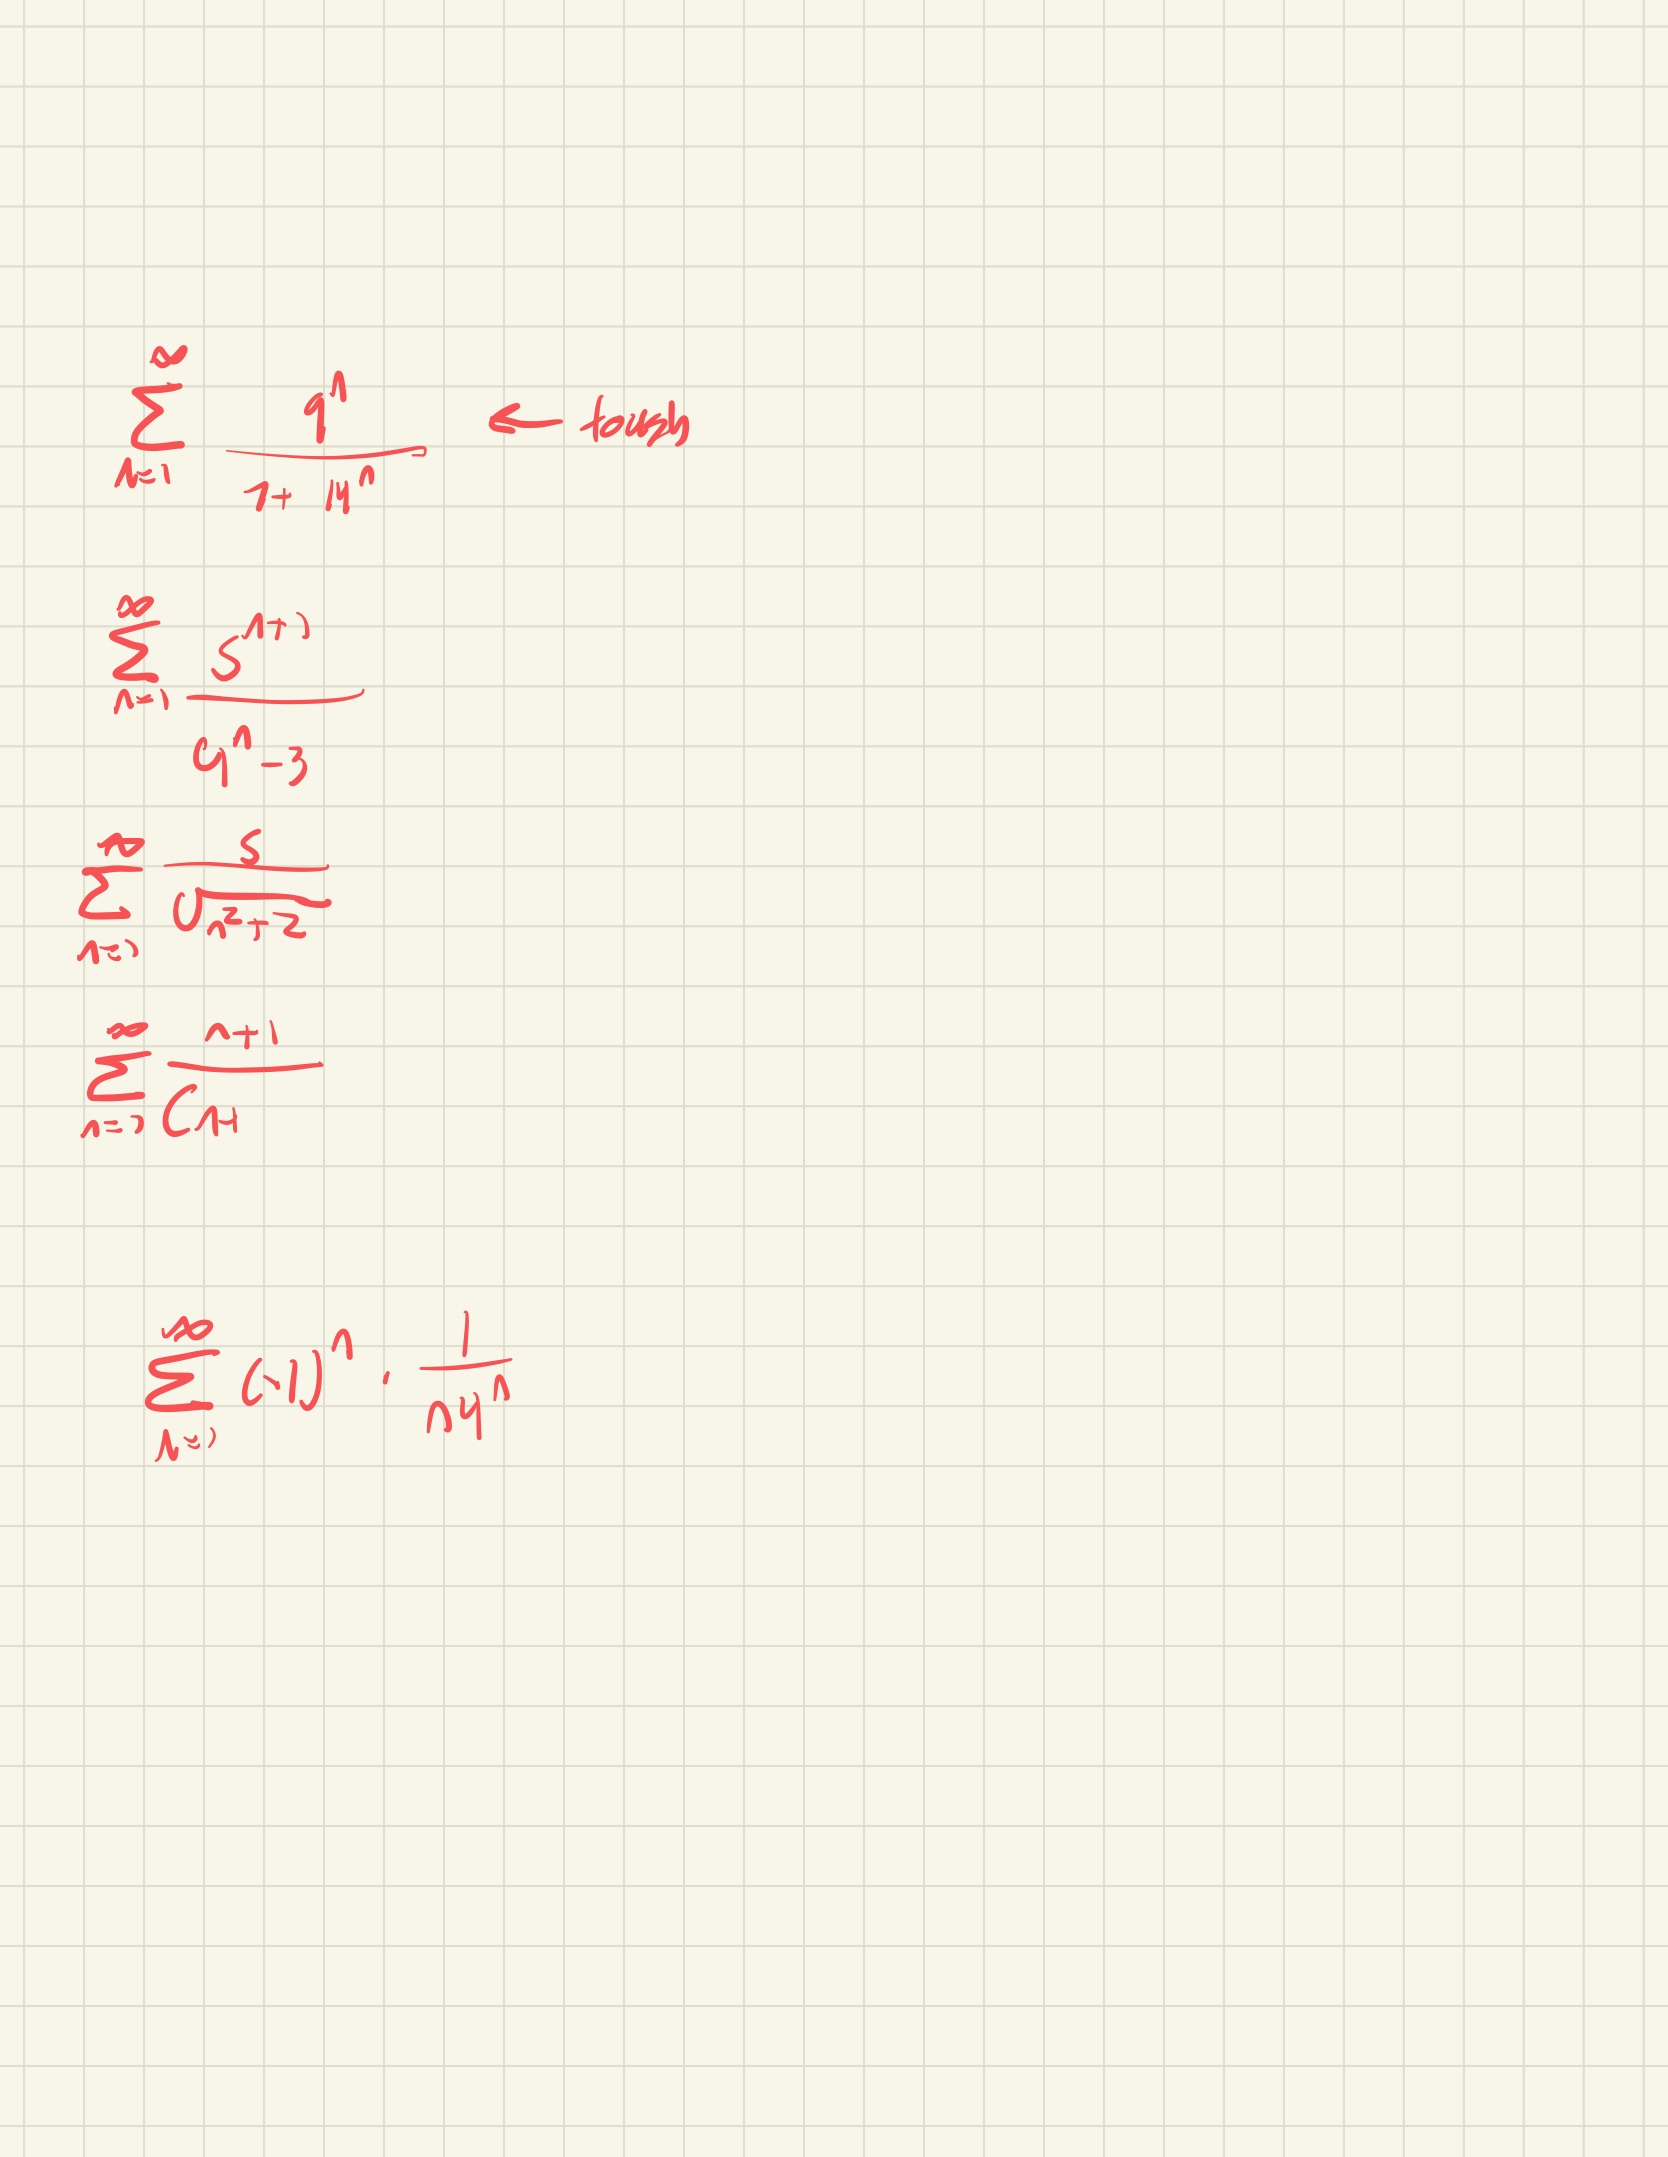 ∑_{n=1}^{∞} 9^n / (1 + 14^n) ← tough
∑_{n=1}^{∞} 5^{n+1} / (4^n - 3)
∑_{n=1}^{∞} 5 / √(n^2 + 2)
∑_{n=1}^{∞} (n+1) /
∑_{n=1}^{∞} (-1)^n · 1 / (n4^n)